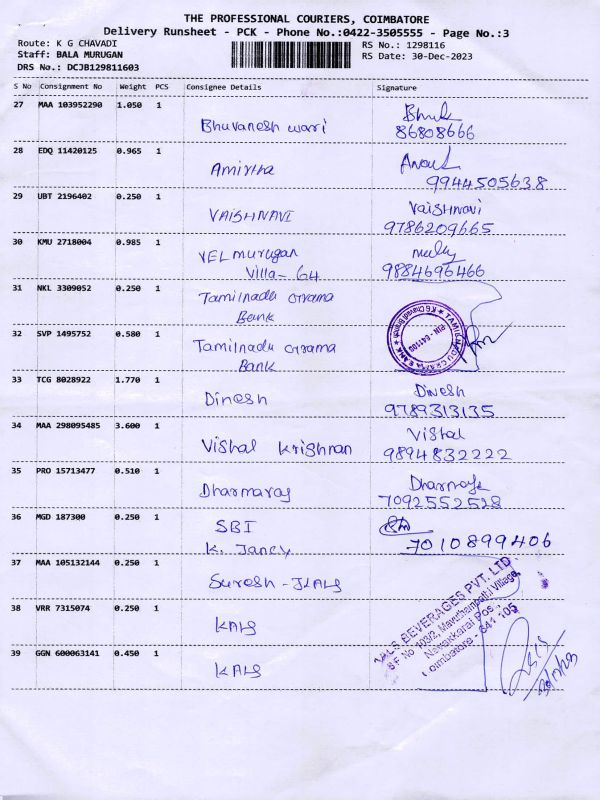 THE PROFESSIONAL COURIERS, COIMBATORE
Delivery Runsheet - PCK - Phone No.:0422-3505555 - Page No.:3
Route: K G CHAVADI
RS No.: 1298116
Staff: BALA MURUGAN
RS Date: 30-Dec-2023
DRS No.: DCJB129811603
S No Consignment No Weight PCS Consignee Details Signature
27 MAA 103952290 1.050 1
Bhuvanesh wari 86808666
28 EDQ 11420125 0.965 1
Amirtha
9944505638
29 UBT 2196402 0.250 1
VAISHNAVI Vaishnavi
9786209665
30 KMU 2718004 0.985 1
VELmurugan
Villa- 64 9884696466
31 NKL 3309052 0.250 1
Tamilnadu Grama
Bank
TAMILNADU GRAMA BANK
K G Chavadi Branch
PIN - 641105
32 SVP 1495752 0.580 1
Tamilnadu Grama
Bank
33 TCG 8028922 1.770 1
Dinesh Dinesh
9789313135
34 MAA 298095485 3.600 1
Vishal Krishnan Vishal
9894832222
35 PRO 15713477 0.510 1
Dharmaraj
7092552528
36 MGD 187300 0.250 1
SBI
K. Janey 7010899406
37 MAA 105132144 0.250 1
Suresh -
38 VRR 7315074 0.250 1
KALS
KALS BEVERAGES PVT. LTD
S F No 103/2, Mavuthampatti Village
Navakkarai Pos
Coimbatore - 641 105
39 GGN 600063141 0.450 1
KALS
30/12/23